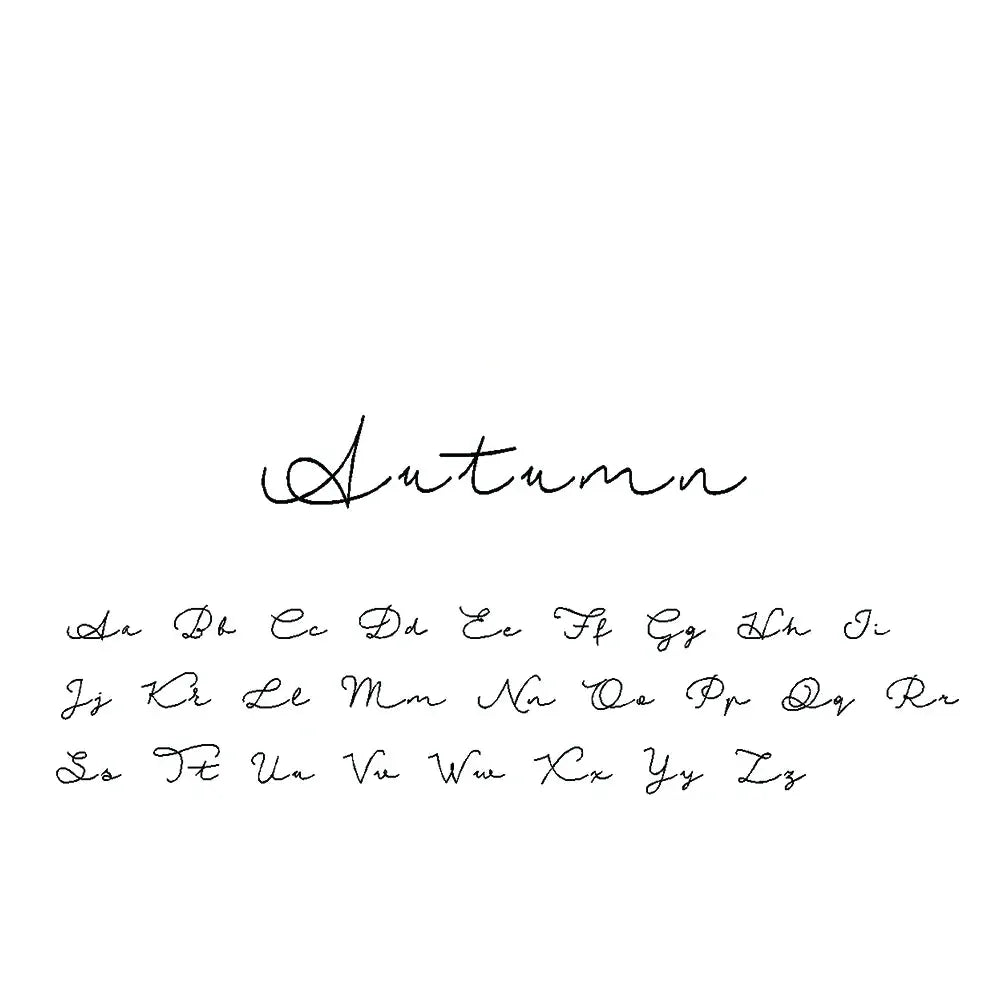 Autumn
Aa Bb Cc Dd Ee Ff Gg Hh Ii
Jj Kk Ll Mm Nn Oo Pp Qq Rr
Ss Tt Uu Vv Ww Xx Yy Zz